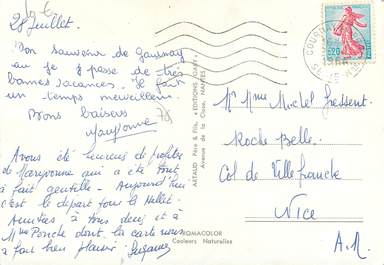 28 Juillet.
Bon souvenir de Gournay
où je passe de très
bonnes vacances. Il fait
un temps merveilleux
Bons baisers
Maryvonne
Avons été heureux de profiter
de Maryvonne qui a été tout
à fait gentille - Aujourd'hui
c'est le départ pour la
Amitiés à tous deux et à
Mme Ponche dont la carte nous
a fait bien plaisir. Suzanne
ARTAUD Père & Fils, "EDITIONS GABY"
Avenue de la Close, NANTES
ROMACOLOR
Couleurs Naturelles
0,20
M. Mme Michel Fressent
Roche Belle
Col de Villefranche
Nice
A.M.